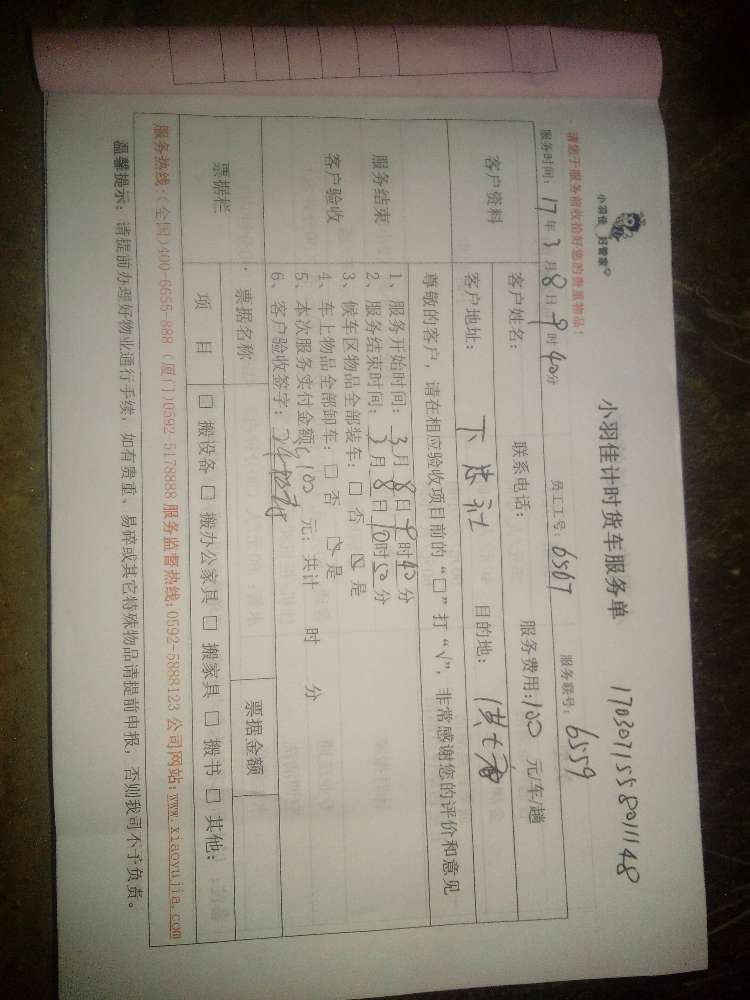 小羽佳 好管家
小羽佳计时货车服务单
1703071558011148
请您于服务前收拾好您的贵重物品！
服务时间：17年3月8日9时40分 员工工号：6567 服务联号：6559
客户资料
客户姓名： 联系电话： 服务费用：100 元/车/趟
客户地址： 目的地：
尊敬的客户，请在相应验收项目前的“□”打“√”，非常感谢您的评价和意见
服务结束
客户验收
1、服务开始时间：3月8日9时40分
2、服务结束时间：3月8日10时50分
3、候车区物品全部装车：□ 否 ☑ 是
4、车上物品全部卸车：□ 否 ☑ 是
5、本次服务实付金额：100 元；共计 时 分
6、客户验收签字：
票据栏
票据名称 票据金额
项目 □ 搬设备 □ 搬办公家具 □ 搬家具 □ 搬书 □ 其他：
服务热线：(全国)400-6655-888 (厦门)0592-5178888 服务监督热线：0592-5888123 公司网站：www.xiaoyujia.com
温馨提示：请提前办理好物业通行手续，如有贵重、易碎或其它特殊物品请提前申报，否则我司不予负责。